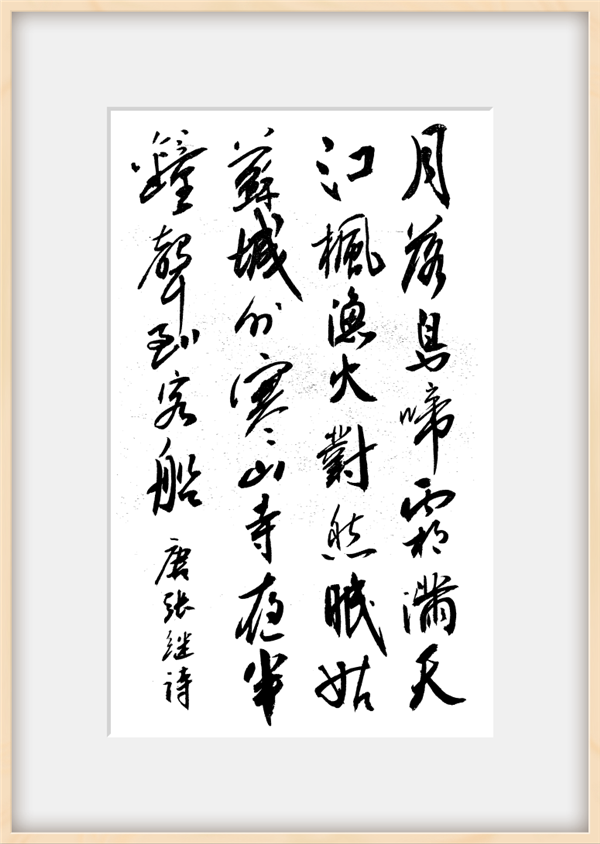 月落烏啼霜滿天
江楓漁火對愁眠姑
蘇城外寒山寺夜半
鐘聲到客船
唐张继詩